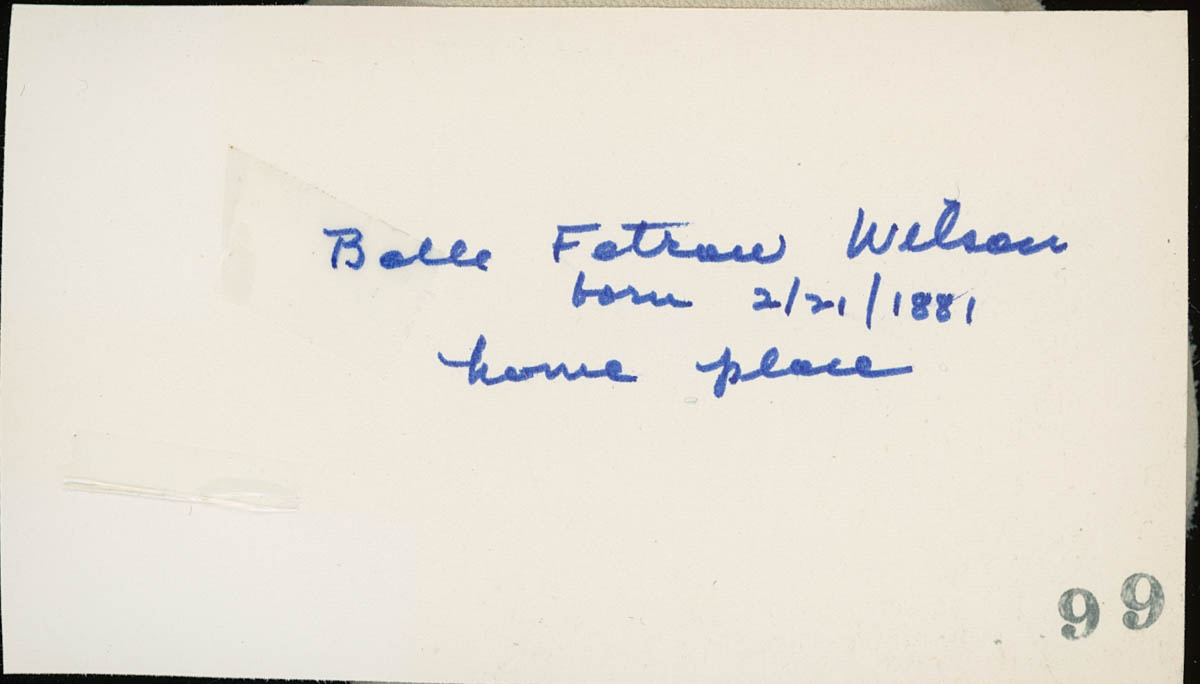 Belle Fetrow Wilson
born 2/21/1881
home place
99